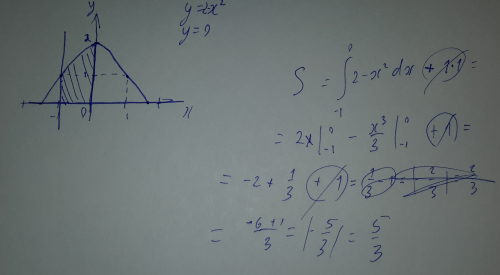 y
y=2x²
y=0
2
1
-1 0 1 x
S = ∫₋₁⁰ 2-x² dx + 1·1 =
= 2x |₋₁⁰ - x³/3 |₋₁⁰ + 1 =
= -2 + 1/3 + 1 = 1/3 = |2/3| 3/3
= -6+1/3 = |-5/3| = 5/3